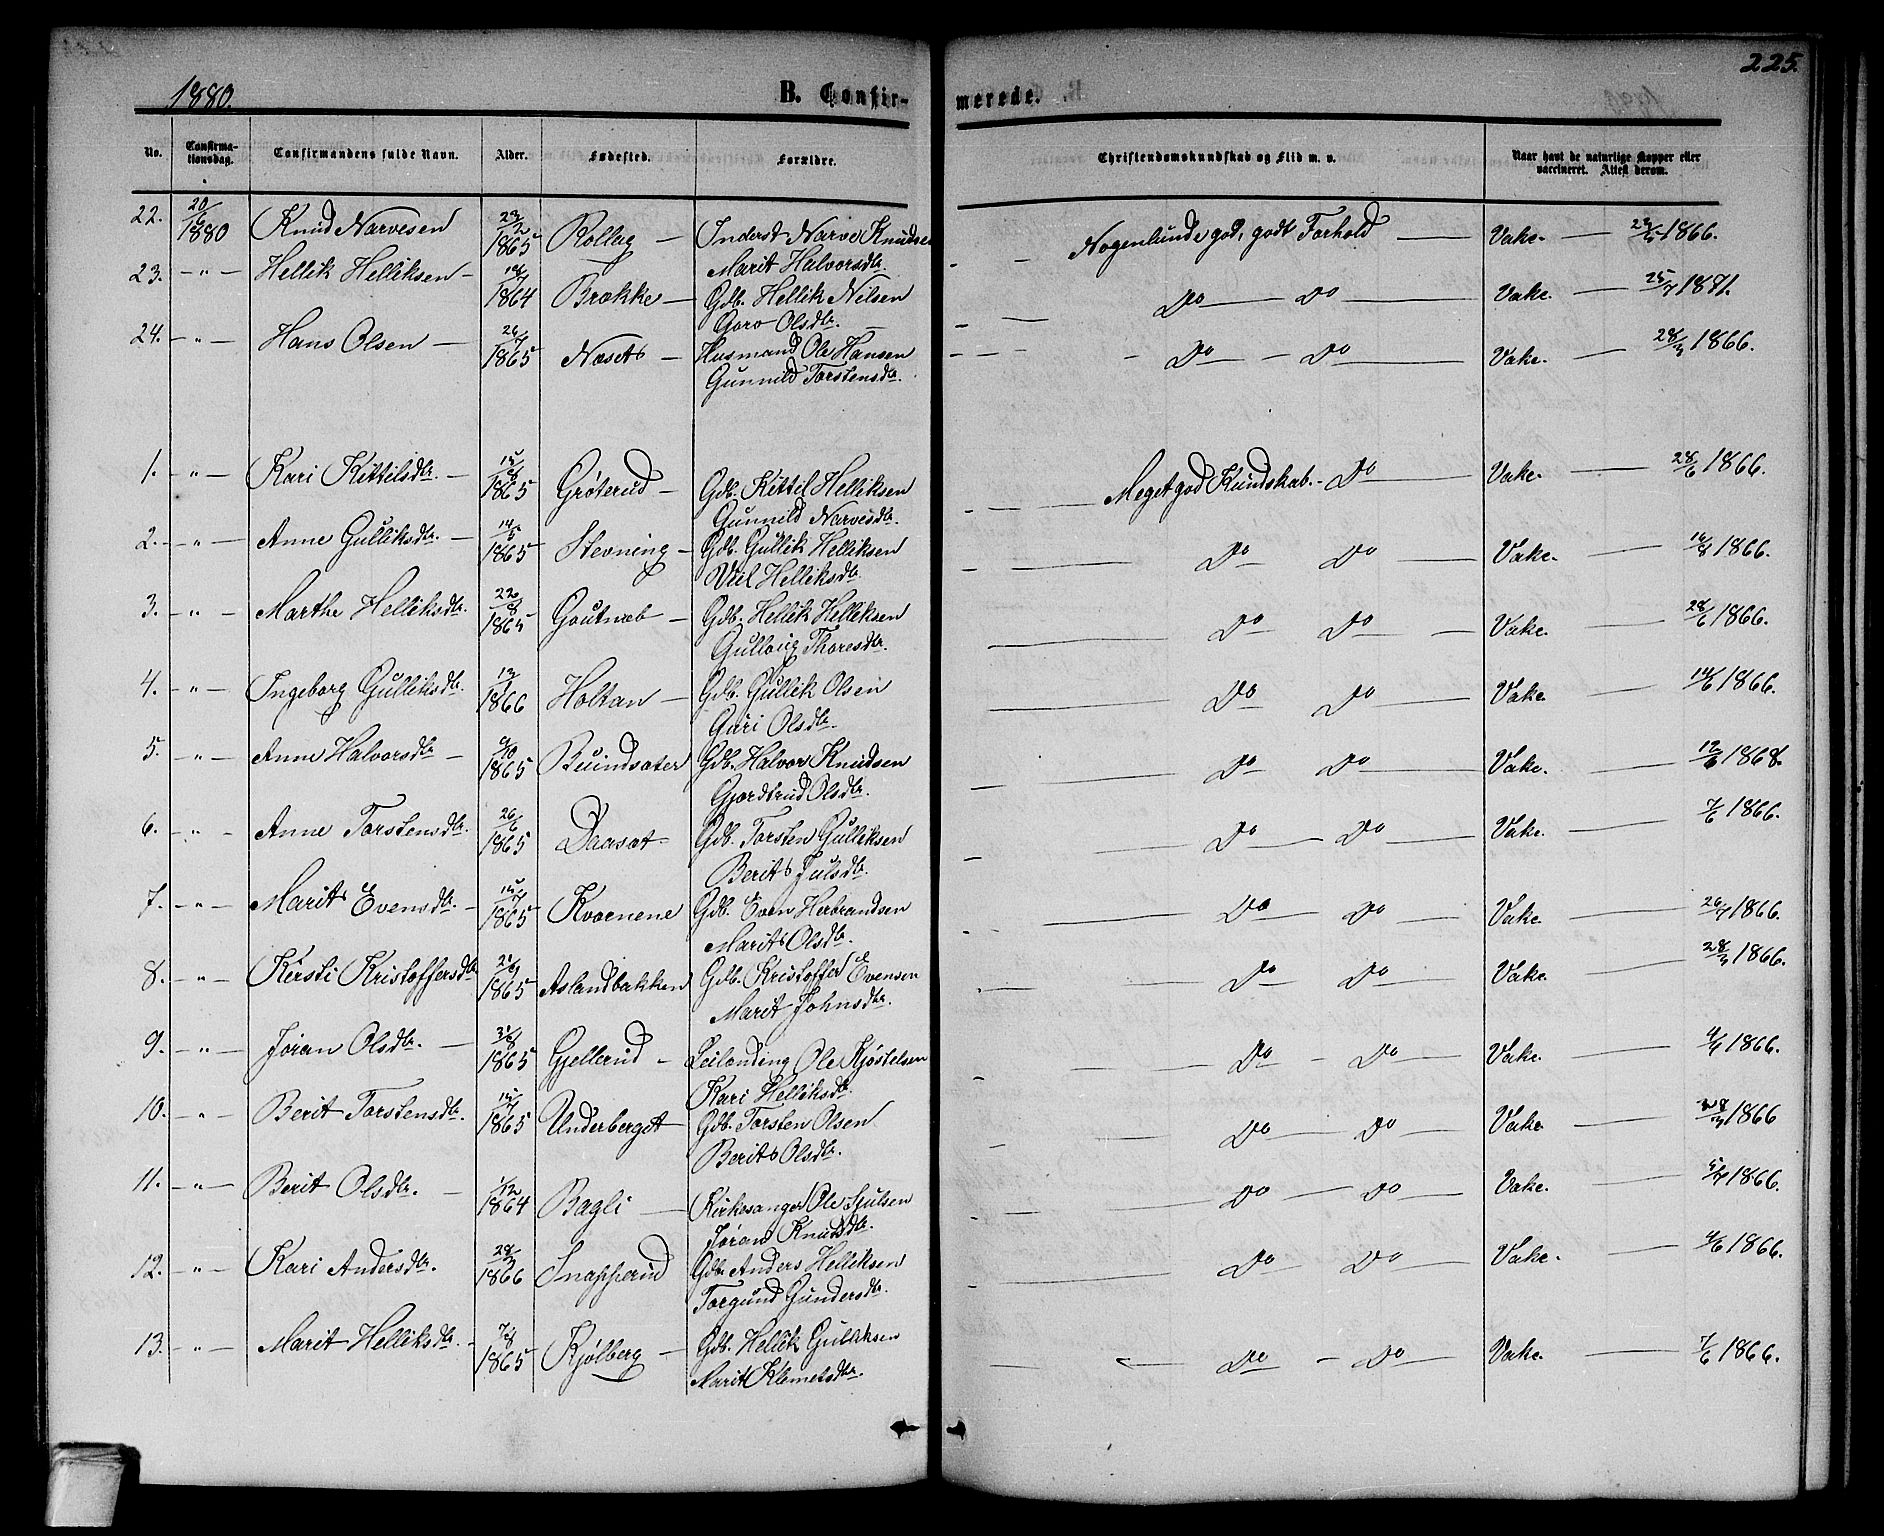 1880. B. Confirmerede. 225.
No. Confirmationsdag. Confirmandens fulde Navn. Alder. Fødested. Forældre. Christendomskundskab og Flid m. v. Naar havt de naturlige Kopper eller vaccineret. Attest derom.
22. 20/6 1880 Knud Narvesen 1865 Rollag — Inderst Narve Knudsen Nogenlunde god, godt Forhold — Vake. — 1866.
Marit Halvorsdtr.
23. — " — Hellik Helliksen — 1864 Brække — Gdb. Hellik Nilsen Do — Do — Vake. — 25/7 1871.
Goro Olsdtr. —
24. — " — Hans Olsen — 26/7 1865 Næset — Husmand Ole Hansen Do — Do — Vake. — 28/3 1866.
Gunnild Torstensdtr.
1. — " — Kari Kittilsdtr. — 1865 Grøterud — Gdb. Kittel Helliksen Meget god Kundskab. — Do — Vake. — 28/6 1866.
Gunnild Narvesdtr.
2. — " — Anne Gulliksdtr. — 14/5 1865 Stevning — Gdb. Gullik Helliksen Do — Do — Vake. — 1866.
Helliksdtr.
3. — " — Marthe Helliksdtr. 22/8 1865 — Gdb. Hellik Helliksen Do — Do — Vake. — 28/6 1866.
Gulloug Thoresdtr.
4. — " — Ingeborg Gulliksdtr. 1866 Holtan — Gdb. Gullik Olsen Do — Do — Vake. — 1866.
Guri Olsdtr.
5. " — Anne Halvorsdtr — 1865 Buindsæter Gdb. Halvor Knudsen Do — Do — Vake. — 12/6 1868.
Gjordtrud Olsdtr.
6. " — Anne Torstensdtr. 26/6 1865 Daasæt — Gdb. Torsten Gulliksen Do — Do — Vake. — 7/6 1866.
Berit Julsdtr.
7. — " — Marit Evensdtr. — 1865 Kvænene Gdb. Even Herbrandsen Do — Do — Vake — 26/7 1866.
Marit Olsdtr.
8. — " — Kersti Kristoffersdtr 1865 Aslandbakken Gdb. Kristoffer Evensen Do — Do — Vake — 28/3 1866.
Marit Johnsdtr.
9. — " — Jøran Olsdtr. — 31/8 1865 Gjellerud — Leilænding Ole Kjøstelsen Do — Do — Vake. — 1866.
Kari Helliksdtr.
10. — " — Berit Torstensdtr. 1865 Underberget — Gdb. Torsten Olsen Do — Do — Vake. — 28/3 1866
Berit Olsdtr.
11. — " — Berit Olsdtr. — 1864 Bagli — Kirkesanger Ole Julsen Do — Do — Vake. — 1866.
Jøran Knutsdtr.
12. — " — Kari Andersdtr. 28/3 1866 Snapperud Gdb. Anders Helliksen Do — Do — Vake. — 1866.
Torgund Gundersdtr.
13. — " — Marit Helliksdtr. — 7/8 1865 Kjølberg — Gdb. Hellik Gulliksen Do — Do — Vake. — 7/6 1866.
Marit Klemetsdtr.